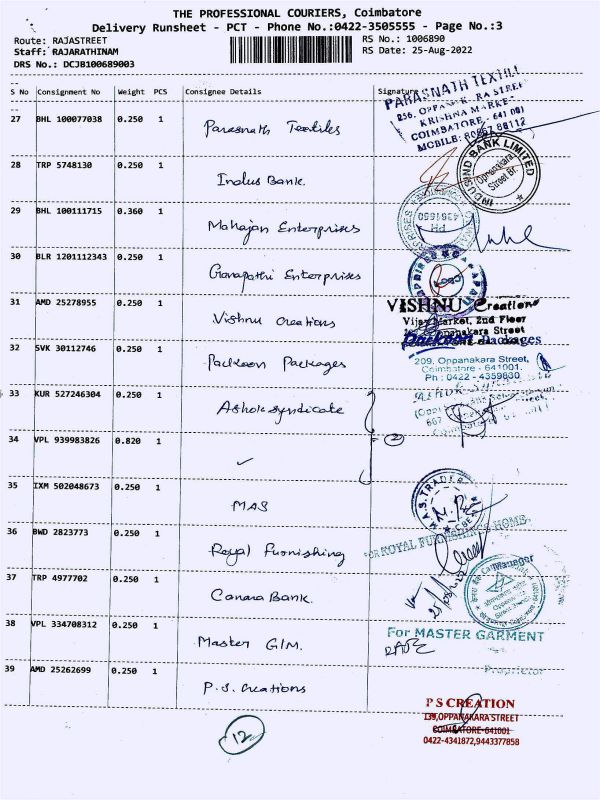 THE PROFESSIONAL COURIERS, Coimbatore
Delivery Runsheet - PCT - Phone No.:0422-3505555 - Page No.:3
Route: RAJASTREET
RS No.: 1006890
Staff: RAJARATHINAM
RS Date: 25-Aug-2022
DRS No.: DCJB100689003
S No Consignment No Weight PCS Consignee Details Signature
27 BHL 100077038 0.250 1 Parasnath Textiles
PARASNATH TEXTILE
KRISHNA MARKE
COIMBATORE - 641 001
MOBILE:
28 TRP 5748130 0.250 1 Indus Bank.
INDUSIND BANK LIMITED
Oppanakara
Street Br.
29 BHL 100111715 0.360 1 Mahajan Enterprises
PH
4391650
30 BLR 1201112343 0.250 1 Ganapathi Enterprises
31 AMD 25278955 0.250 1 Vishnu Creations
VISHNU Creations
Market, 2nd Floor
Oppanakara Street
32 SVK 30112746 0.250 1 Packeon Packages
Packages
209, Oppanakara Street,
Coimbatore - 641001.
Ph : 0422 - 4359830
33 KUR 527246304 0.250 1 Ashok syndicate
34 VPL 939983826 0.820 1 ✓
2
35 IXM 502048673 0.250 1 MAS
M.A.S. TRADERS
36 BWD 2823773 0.250 1 Royal Furnishing
FOR ROYAL FURNISHING HOME,
37 TRP 4977702 0.250 1 Canara Bank.
Manager
38 VPL 334708312 0.250 1 Master G/M.
For MASTER GARMENT
Proprietor
39 AMD 25262699 0.250 1 P.S. Creations
P S CREATION
139, OPPANAKARA STREET
COIMBATORE-641001
0422-4341872,9443377858
12